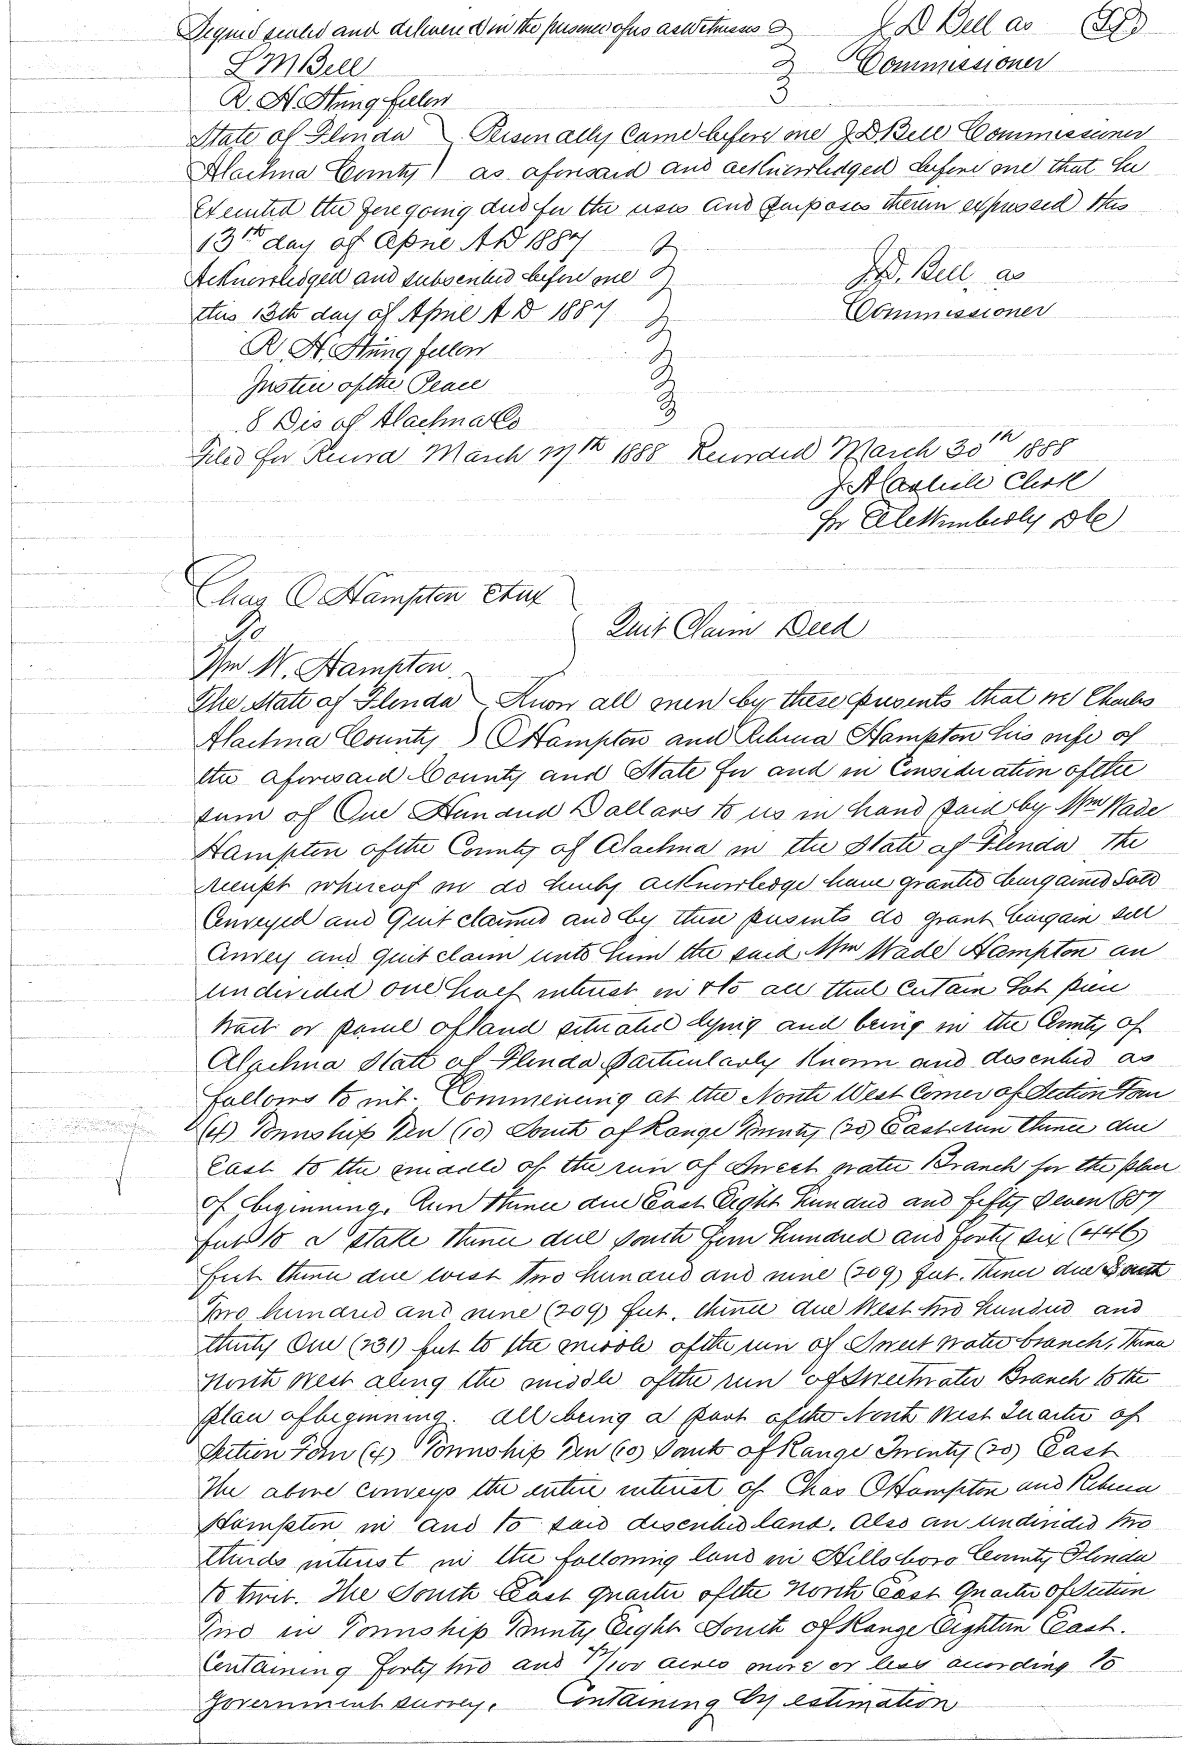 Signed sealed and delivered in the presence of us as witnesses J D Bell as
L M Bell Commissioner
R. H. Stringfellow
State of Florida Personally Came before me J. D. Bell Commissioner
Alachua County as aforesaid and acknowledged before me that he
Executed the foregoing deed for the uses and purposes therein expressed this
13th day of April A D 1887
Acknowledged and subscribed before me J. D. Bell, as
this 13th day of April A D 1887 Commissioner
R. H. Stringfellow
Justice of the Peace
8 Dis of Alachua Co
Filed for Record March 1888 Recorded March 30th 1888
J A Carlisle Clerk
for Wimberly D C
Chas O Hampton et ux
To Quit Claim Deed
Wm W. Hampton.
The State of Florida Know all men by these presents that we Charles
Alachua County O Hampton and Rebecca Hampton his wife of
the aforesaid County and State for and in Consideration of the
sum of One Hundred Dollars to us in hand paid by Wm Wade
Hampton of the County of Alachua in the State of Florida the
receipt whereof we do hereby acknowledge have granted bargained Sold
Conveyed and Quit claimed and by these presents do grant bargain sell
Convey and quit claim unto him the said Wm Wade Hampton an
undivided one half interest in & to all that Certain Lot piece
tract or parcel of land situated lying and being in the County of
Alachua State of Florida particularly Known and described as
follows to wit. Commencing at the North West Corner of Section Four
(4) Township Ten (10) South of Range Twenty (20) East run thence due
East to the middle of the run of Sweet water Branch for the place
of beginning. Run thence due East Eight hundred and fifty Seven (857
feet to a stake thence due South four hundred and forty six (446)
feet thence due west two hundred and nine (209) feet. thence due South
Two hundred and nine (209) feet. thence due West two hundred and
thirty One (231) feet to the middle of the run of Sweet water branch, thence
North West along the middle of the run of Sweetwater Branch to the
place of beginning. all being a part of the North West Quarter of
Section Four (4) Township Ten (10) South of Range Twenty (20) East
The above conveys the entire interest of Chas O Hampton and Rebecca
Hampton in and to said described land. Also an undivided two
thirds interest in the following land in Hillsboro County Florida
to twit. The South East quarter of the North East Quarter of Section
Two in Township Twenty Eight South of Range Eighteen East.
Containing forty two and /100 acres more or less according to
government survey. Containing by estimation